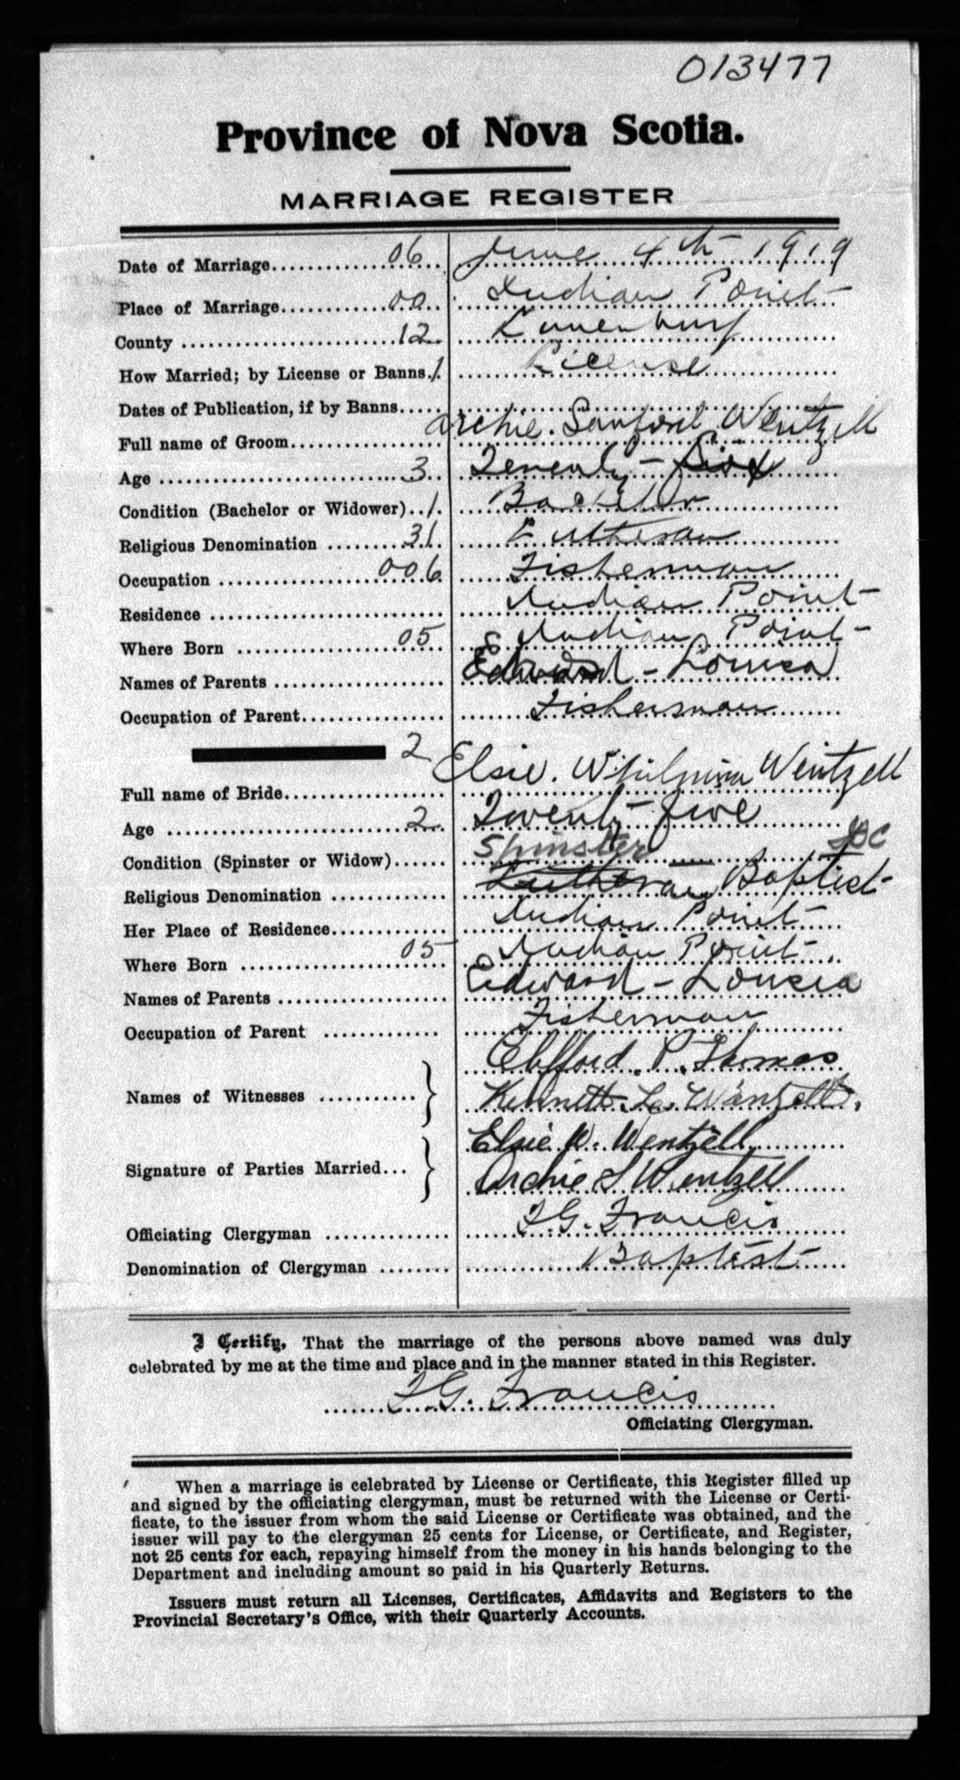 013477
Province of Nova Scotia.
MARRIAGE REGISTER
Date of Marriage 06 June 4th 1919
Place of Marriage 00 Indian Point
County 12 Lunenburg
How Married; by License or Banns 1 License
Dates of Publication, if by Banns
Full name of Groom Archie Sanford Wentzell
Age 3 Twenty-
Condition (Bachelor or Widower) 1 Bachelor
Religious Denomination 31 Lutheran
Occupation 006 Fisherman
Residence Indian Point
Where Born 05 Indian Point
Names of Parents Edward - Louisa
Occupation of Parent Fisherman
2
Full name of Bride Elsie Wentzell
Age 2 Twenty-five
Condition (Spinster or Widow) Spinster
Religious Denomination Lutheran Baptist
Her Place of Residence Indian Point
Where Born 05 Indian Point
Names of Parents Edward - Lousia
Occupation of Parent Fisherman
Names of Witnesses Clifford P.
Kennett
Signature of Parties Married Elsie W. Wentzell
Archie S Wentzell
Officiating Clergyman G. Francis
Denomination of Clergyman Baptist
I Certify, That the marriage of the persons above named was duly
celebrated by me at the time and place and in the manner stated in this Register.
G. Francis
Officiating Clergyman.
When a marriage is celebrated by License or Certificate, this Register filled up
and signed by the officiating clergyman, must be returned with the License or Certi-
ficate, to the issuer from whom the said License or Certificate was obtained, and the
issuer will pay to the clergyman 25 cents for License, or Certificate, and Register,
not 25 cents for each, repaying himself from the money in his hands belonging to the
Department and including amount so paid in his Quarterly Returns.
Issuers must return all Licenses, Certificates, Affidavits and Registers to the
Provincial Secretary's Office, with their Quarterly Accounts.